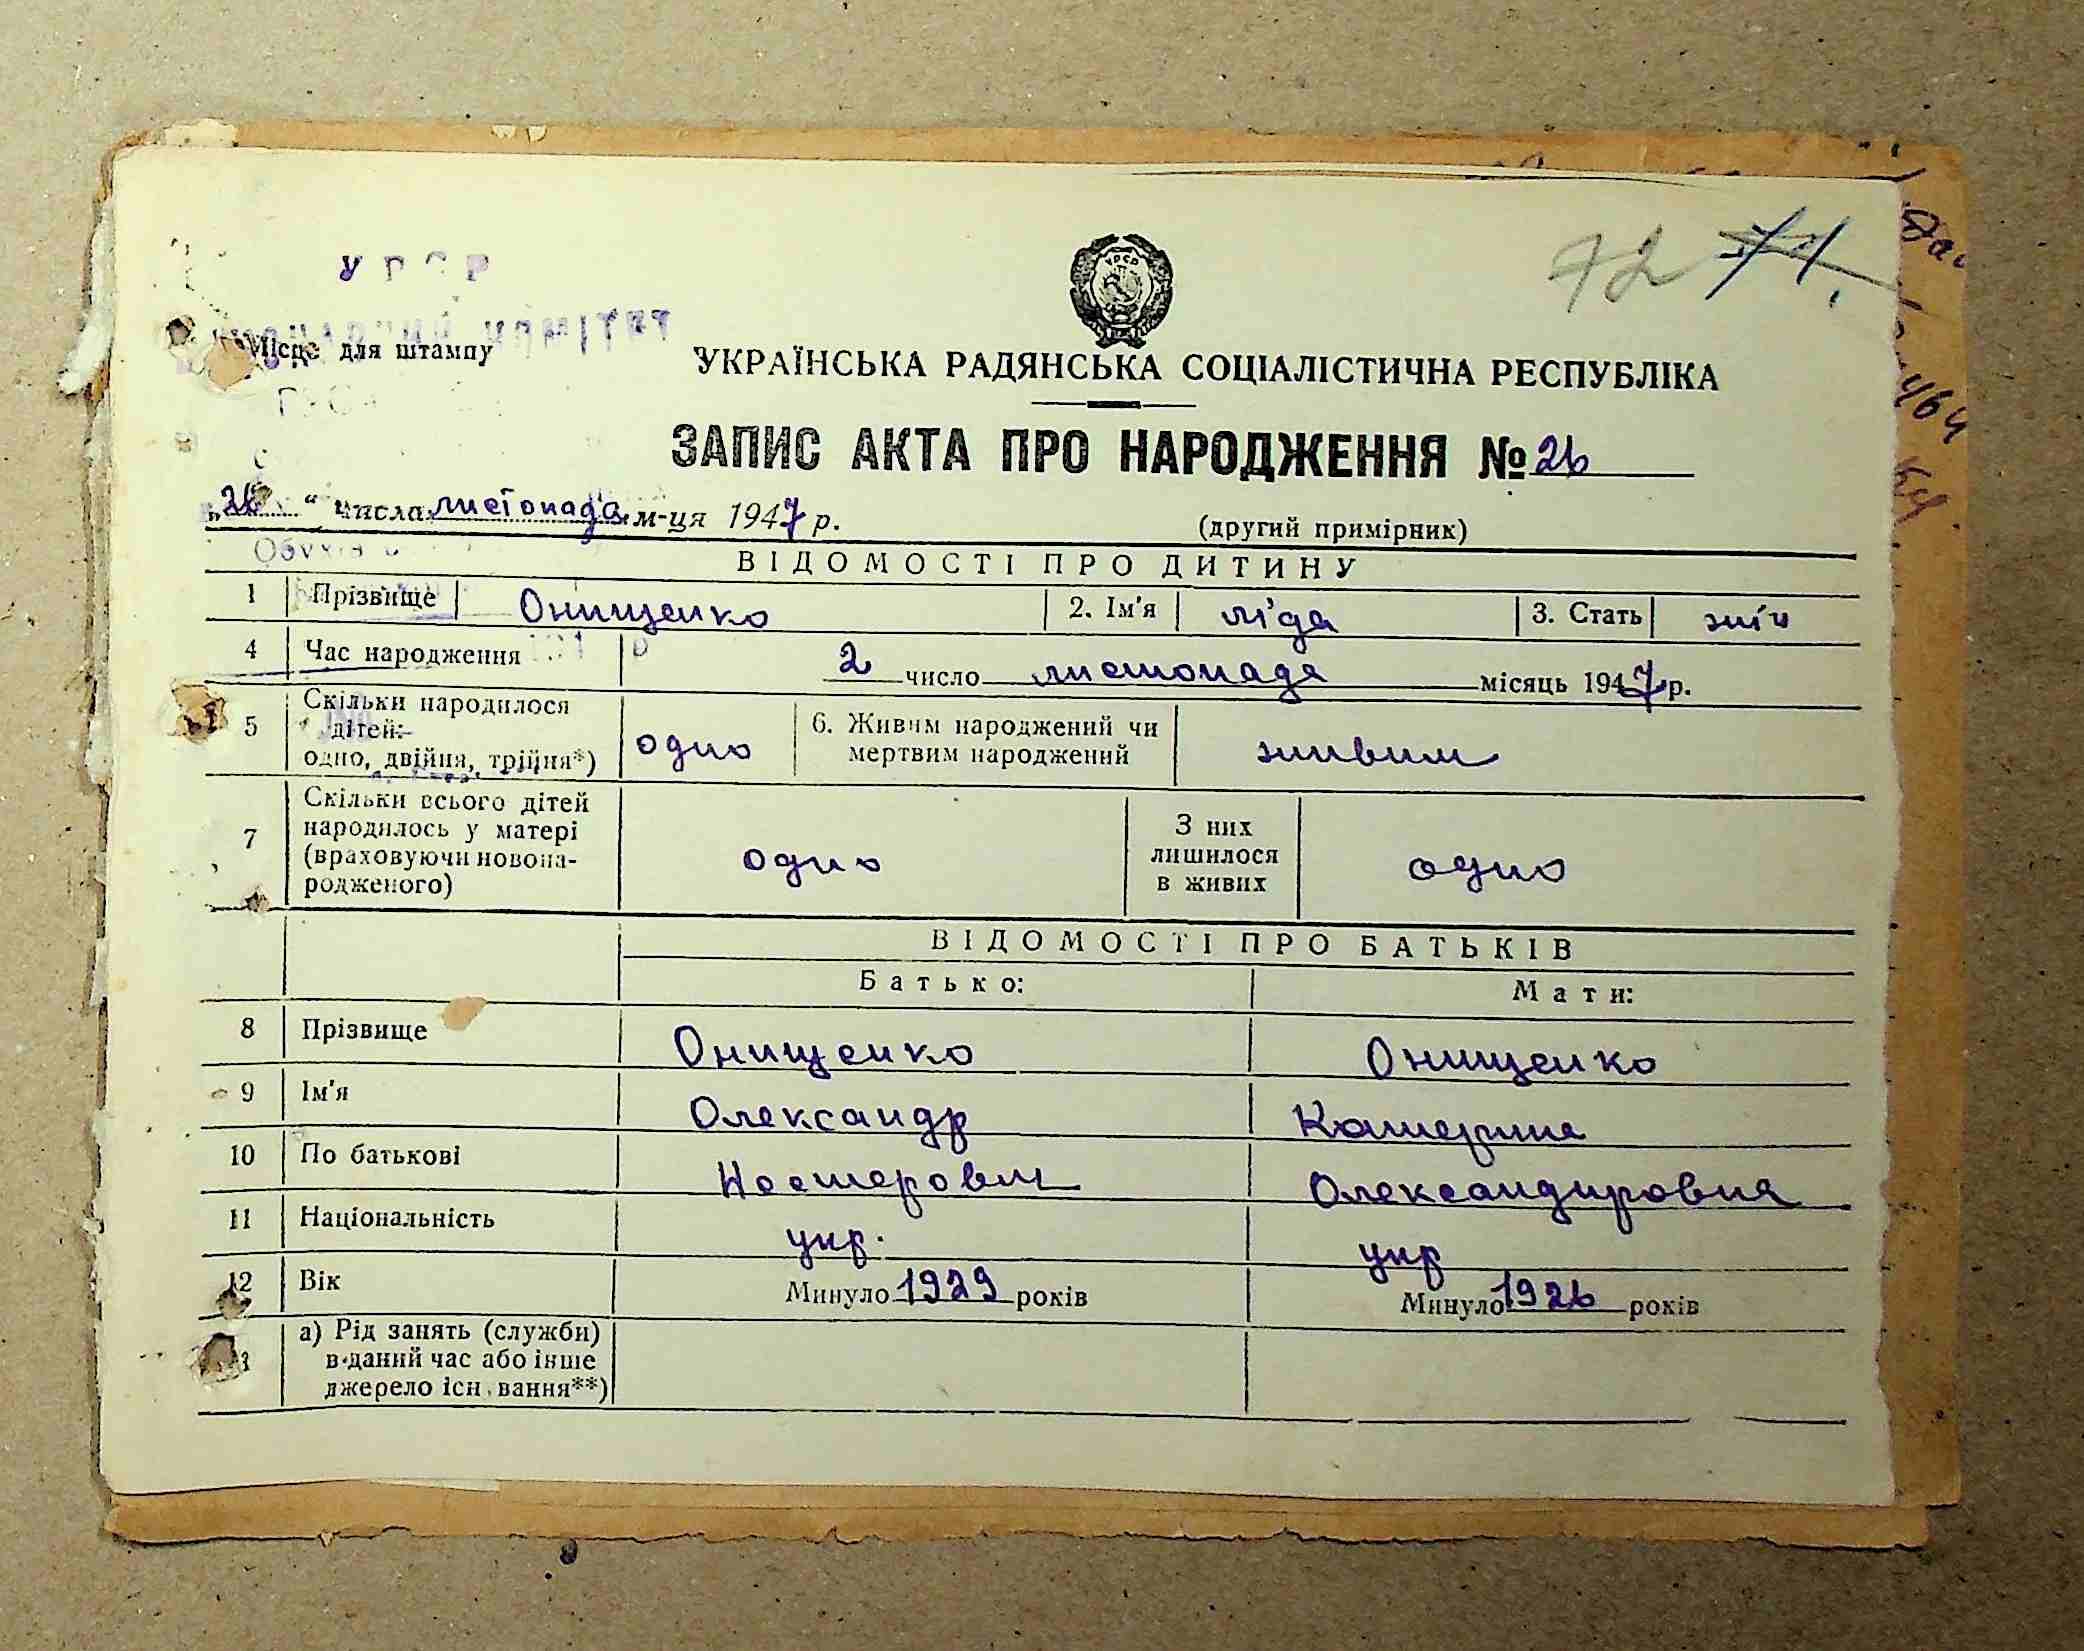 72 71.
УРСР
Місце для штампу
УКРАЇНСЬКА РАДЯНСЬКА СОЦІАЛІСТИЧНА РЕСПУБЛІКА
ЗАПИС АКТА ПРО НАРОДЖЕННЯ № 26
„26“ числа листопада м-ця 1947 р.
(другий примірник)
ВІДОМОСТІ ПРО ДИТИНУ
1 Прізвище Онищенко 2. Ім'я Ліда 3. Стать жін
4 Час народження 2 число листопада місяць 1947 р.
5 Скільки народилося дітей: одно, двійня, трійня*) одно 6. Живим народжений чи мертвим народжений живим
7 Скільки всього дітей народилось у матері (враховуючи новонародженого) одно З них лишилося в живих одно
ВІДОМОСТІ ПРО БАТЬКІВ
Батько: Мати:
8 Прізвище Онищенко Онищенко
9 Ім'я Олександр Катерина
10 По батькові Нестерович Олександровна
11 Національність укр. укр
12 Вік Минуло 1929 років Минуло 1926 років
а) Рід занять (служби) в даний час або інше джерело існування**)